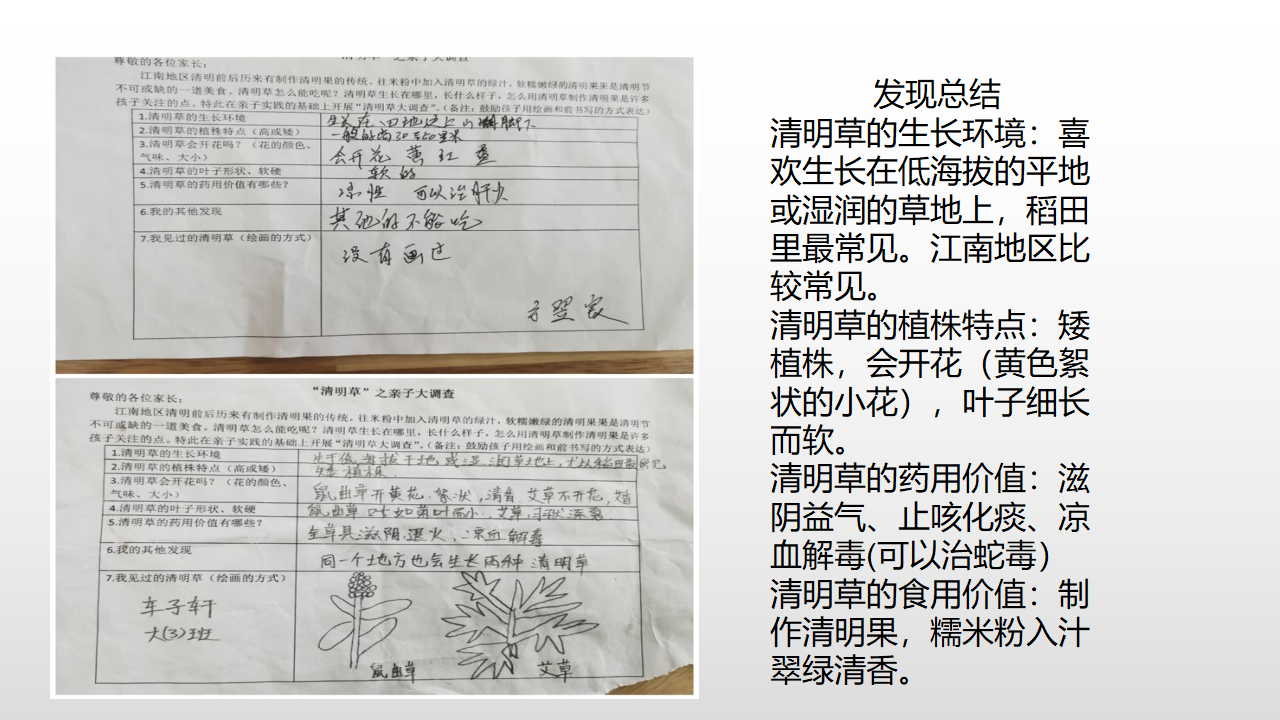 尊敬的各位家长：
江南地区清明前后历来有制作清明果的传统。往米粉中加入清明草的绿汁，软糯嫩绿的清明果来是清明节
不可或缺的一道美食。清明草怎么能吃呢？清明草生长在哪里，长什么样子，怎么用清明草制作清明果是许多
孩子关注的点。特此在亲子实践的基础上开展“清明草大调查”。（备注：鼓励孩子用绘画和前书写的方式表达）
1.清明草的生长环境
2.清明草的植株特点（高或矮）
3.清明草会开花吗？（花的颜色、
气味、大小）
会开花 黄 红 蓝
4.清明草的叶子形状、软硬
软的
5.清明草的药用价值有哪些？
凉性 可以治肝火
6.我的其他发现
其他的不能吃
7.我见过的清明草（绘画的方式）
没有画过
“清明草”之亲子大调查
尊敬的各位家长：
江南地区清明前后历来有制作清明果的传统。往米粉中加入清明草的绿汁，软糯嫩绿的清明果果是清明节
不可或缺的一道美食。清明草怎么能吃呢？清明草生长在哪里，长什么样子，怎么用清明草制作清明果是许多
孩子关注的点。特此在亲子实践的基础上开展“清明草大调查”。（备注：鼓励孩子用绘画和前书写的方式表达）
1.清明草的生长环境
2.清明草的植株特点（高或矮）
矮植根
3.清明草会开花吗？（花的颜色、
气味、大小）
鼠曲草开黄花，絮状，清香，艾草不开花，
4.清明草的叶子形状、软硬
5.清明草的药用价值有哪些？
全草具滋阴退火，凉血解毒
6.我的其他发现
同一个地方也会生长两种清明草
7.我见过的清明草（绘画的方式）
车子轩
大(3)班
鼠曲草
艾草
发现总结
清明草的生长环境：喜
欢生长在低海拔的平地
或湿润的草地上，稻田
里最常见。江南地区比
较常见。
清明草的植株特点：矮
植株，会开花（黄色絮
状的小花），叶子细长
而软。
清明草的药用价值：滋
阴益气、止咳化痰、凉
血解毒(可以治蛇毒）
清明草的食用价值：制
作清明果，糯米粉入汁
翠绿清香。